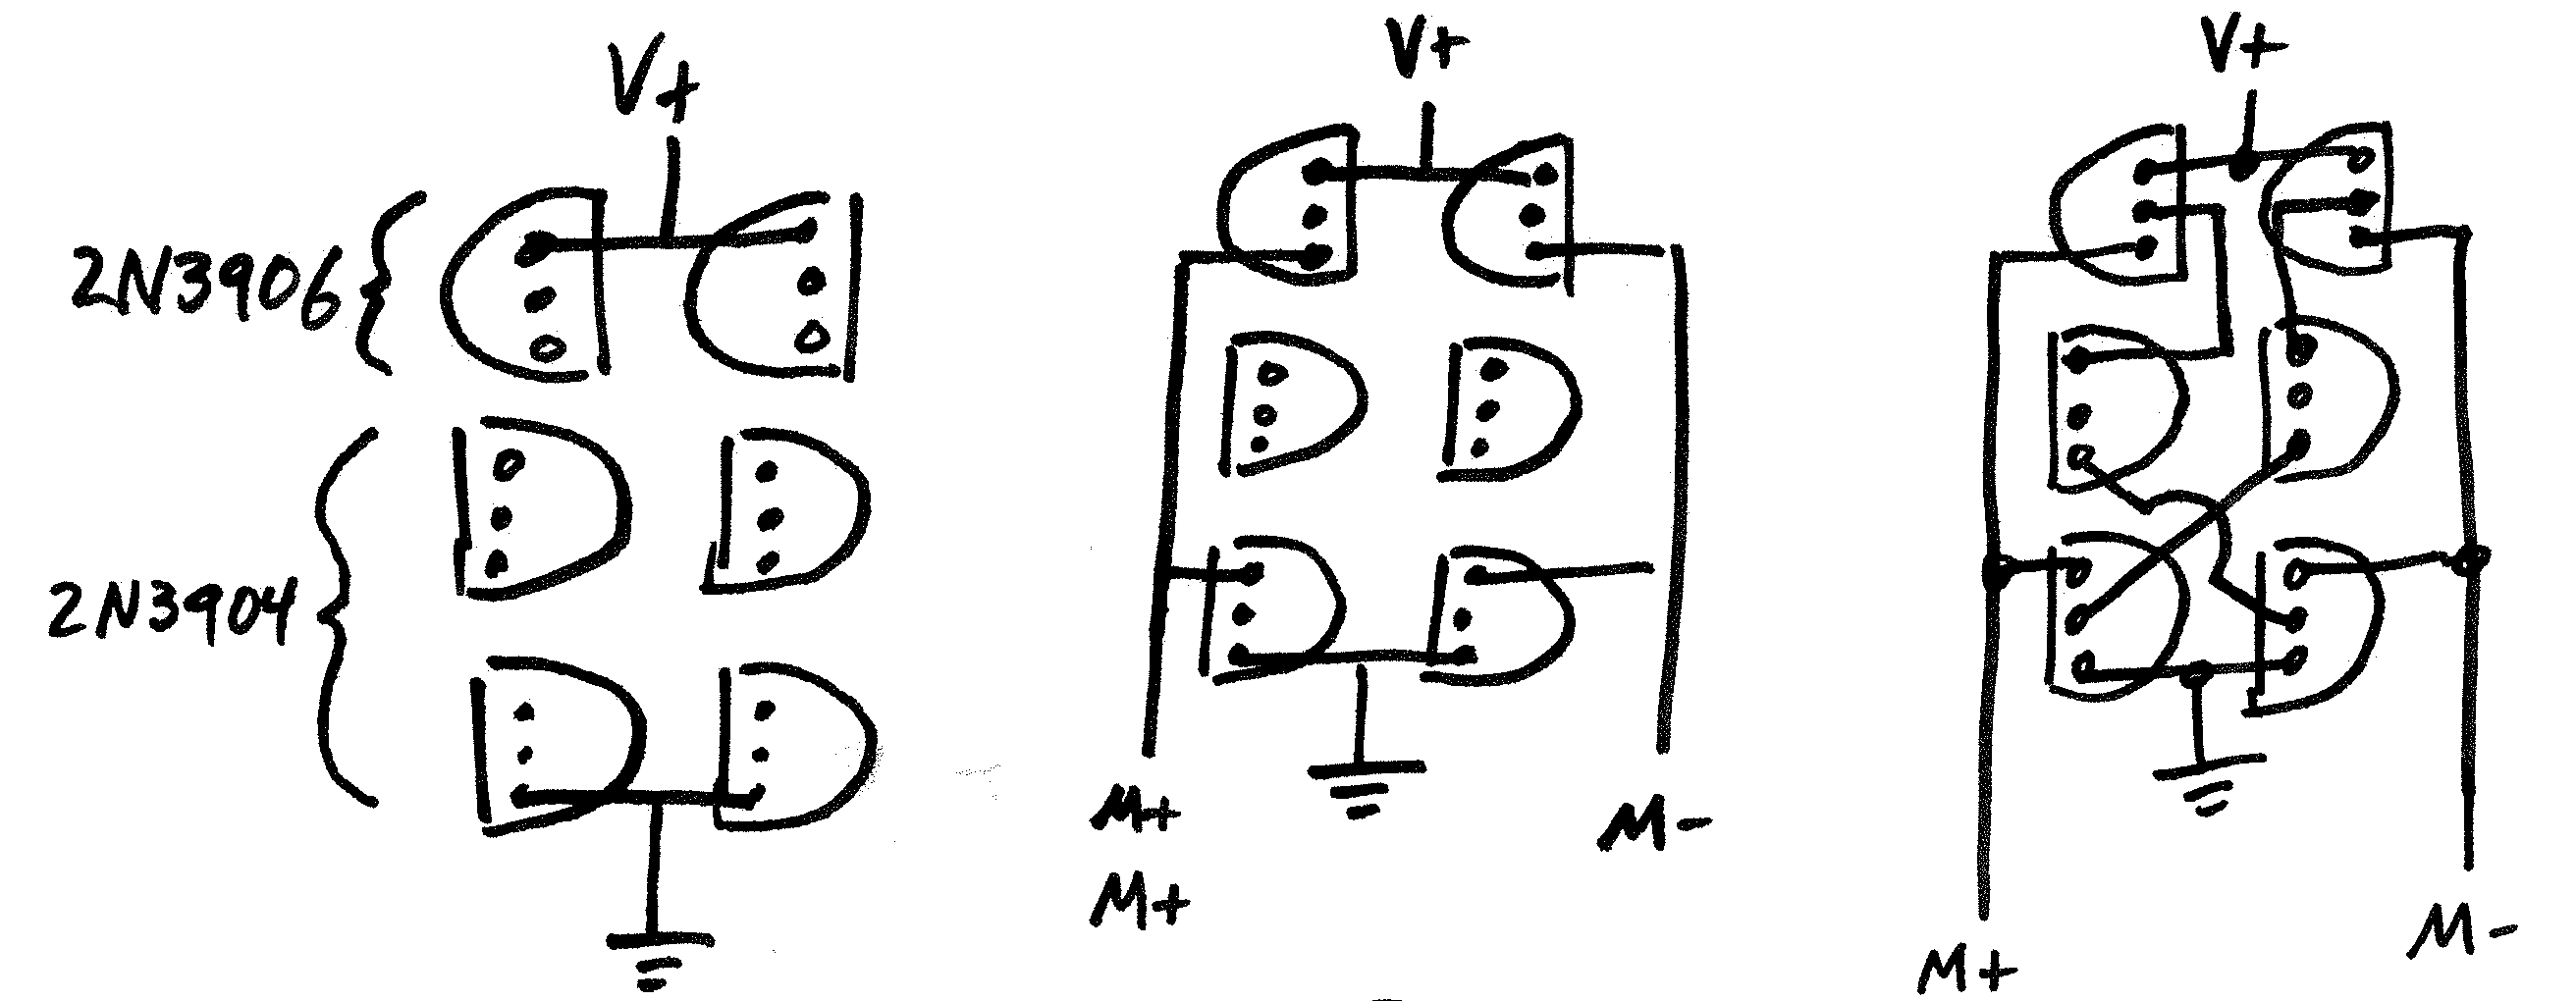 V+
2N3906
2N3904
V+
M+
M-
M+
V+
M+
M-